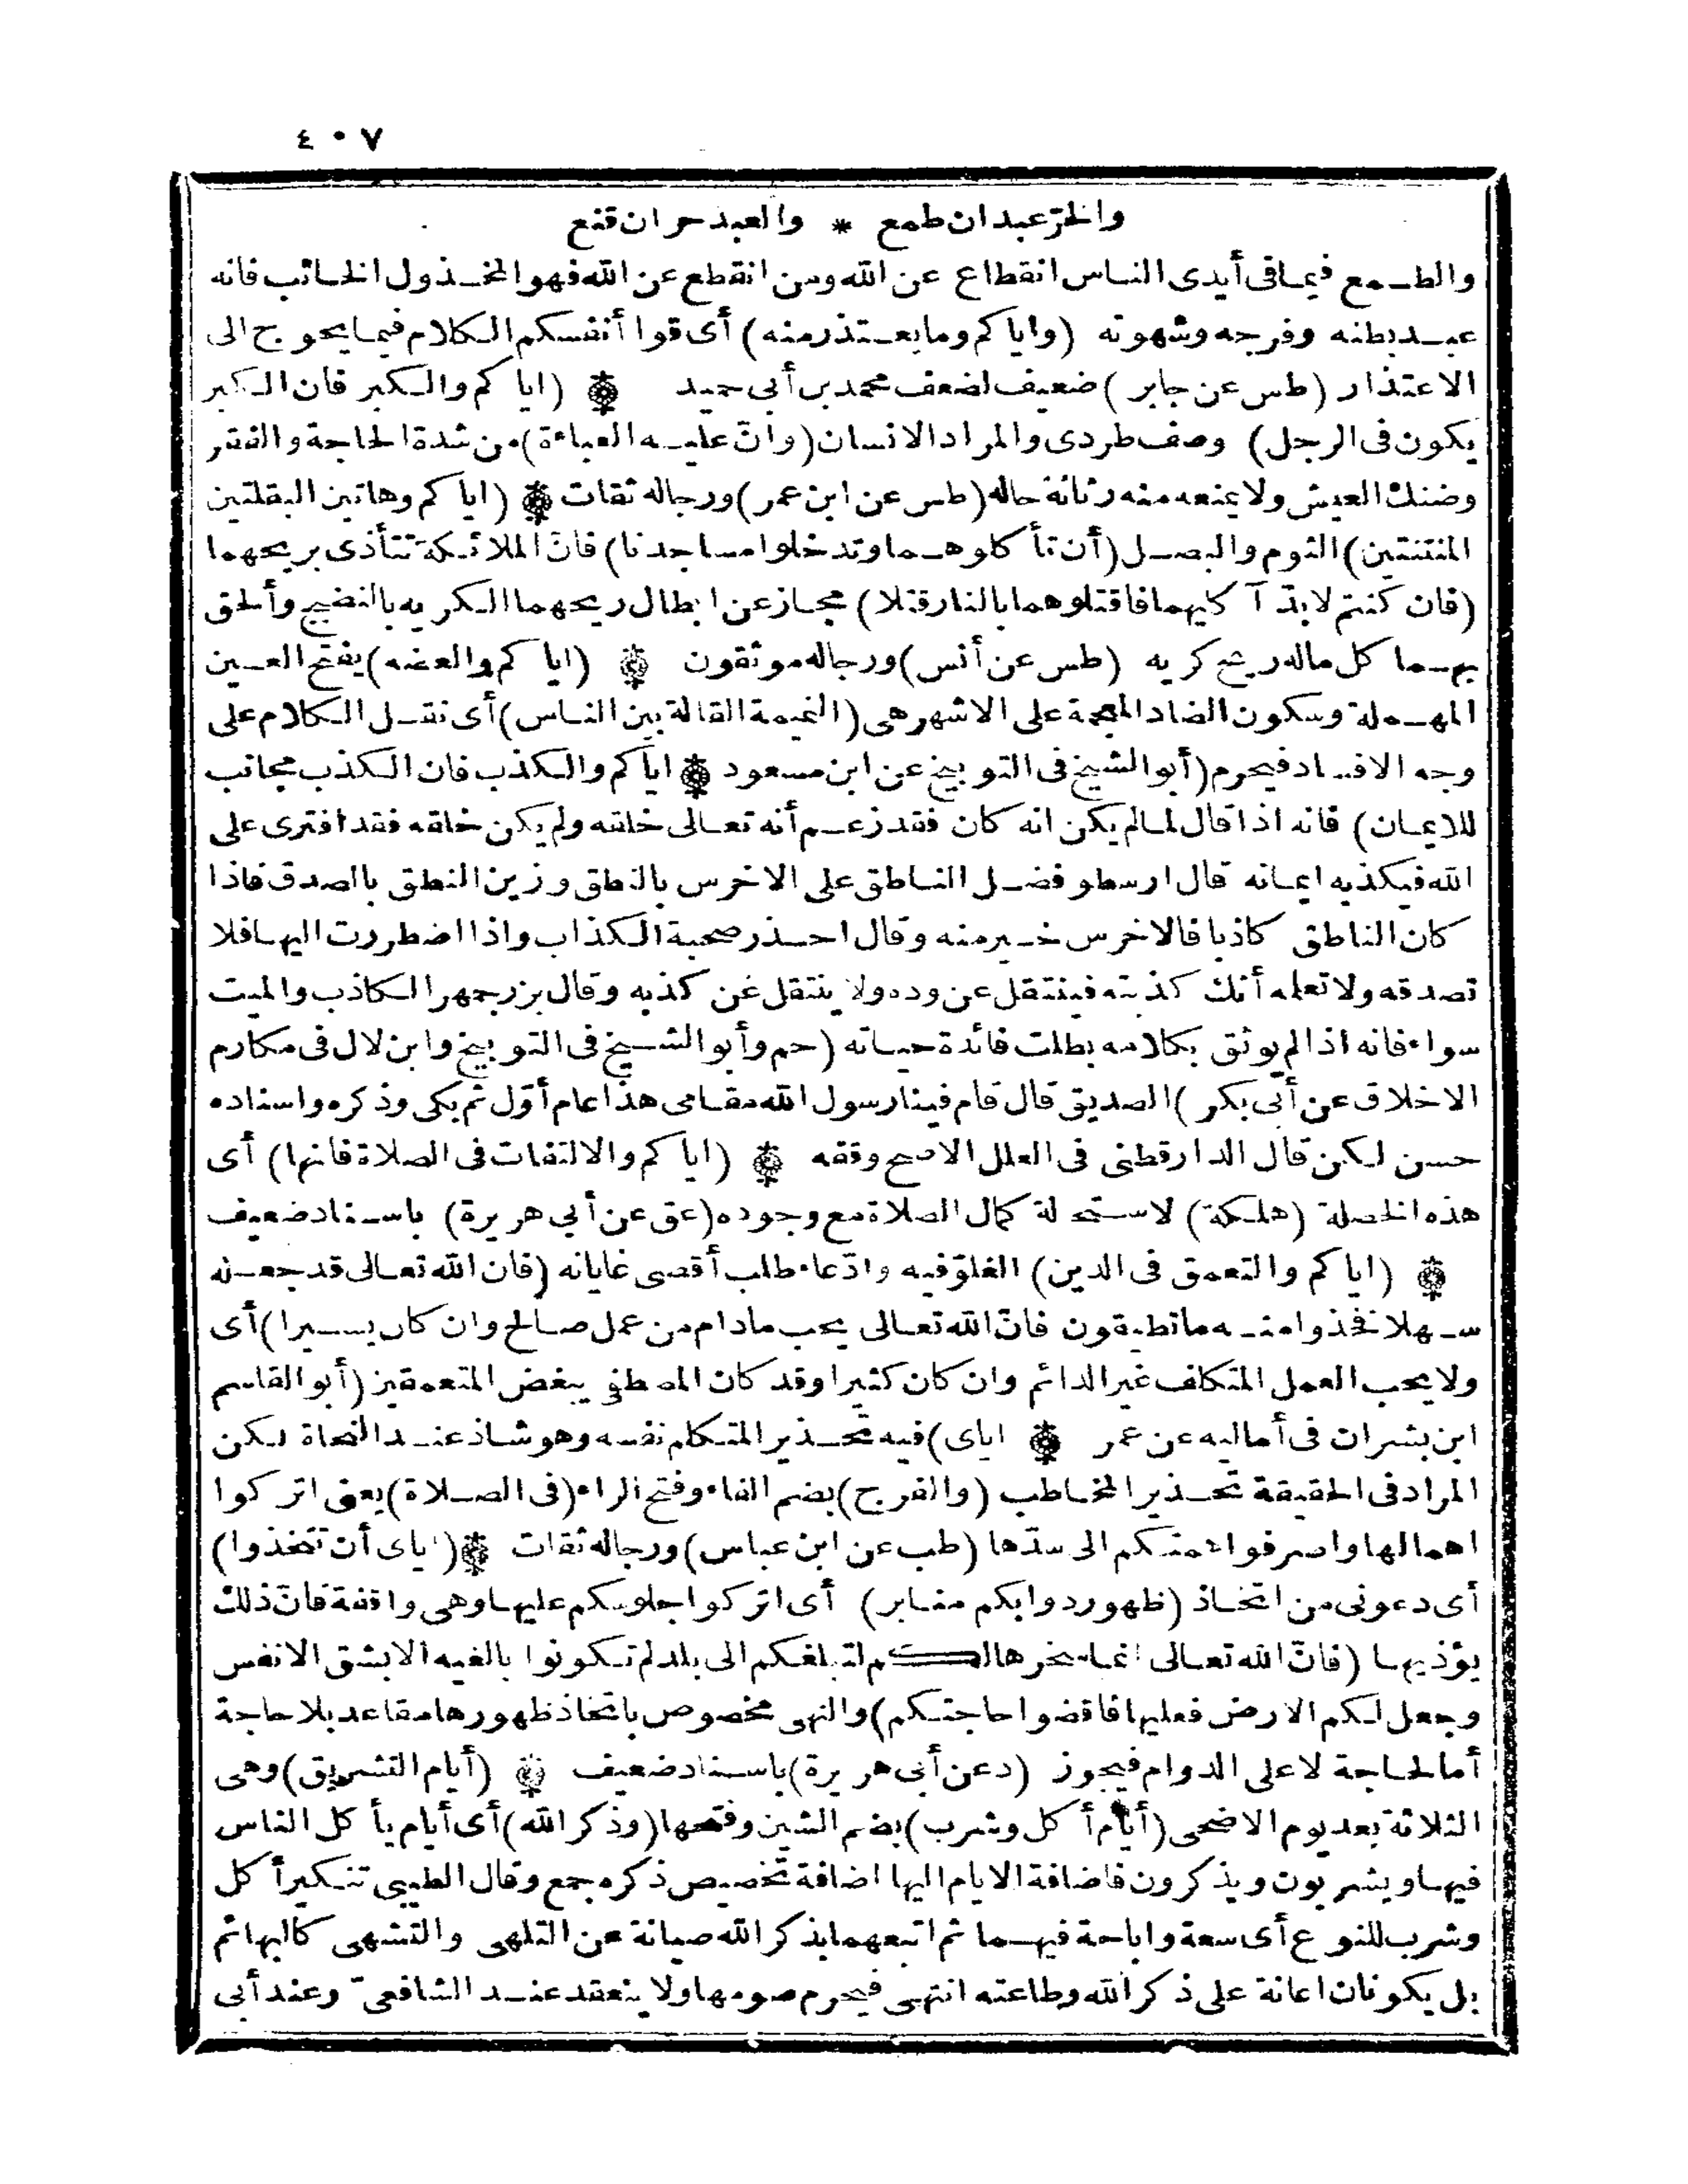 ٤٠٧
والحرّ عبد ان طمع * والعبد حر ان قنع
والطمع فيما فى أيدى الناس انقطاع عن الله ومن انقطع عن الله فهو المخذول الخائب فانه
عبد بطنه وفرجه وشهوته (واياكم وما يعتذر منه) أى قوا أنفسكم الكلام فيما يحوج الى
الاعتذار (طس عن جابر) ضعيف لضعف محمد بن أبى حميد ۞ (اياكم والكبر فان الكبر
يكون فى الرجل) وصف طردى والمراد الانسان (وانّ عليه العباءة) من شدة الحاجة والفقر
وضنك العيش ولا يمنعه منه رثاثة حاله (طس عن ابن عمر) ورجاله ثقات ۞ (اياكم وهاتين البقلتين
المنتنتين) الثوم والبصل (أن تأكلوهما وتدخلوا مساجدنا) فانّ الملائكة تتأذى بريحهما
(فان كنتم لابدّ آكليهما فاقتلوهما بالنار قتلا) مجاز عن ابطال ريحهما الكريه بالنضيج وألحق
بهما كل ماله ريح كريه (طس عن أنس) ورجاله موثقون ۞ (اياكم والعضه) بفتح العين
المهملة وسكون الضاد المعجمة على الاشهر هى (النميمة القالة بين الناس) أى نقل الكلام على
وجه الافساد فيحرم (أبو الشيخ فى التوبيخ عن ابن مسعود ۞ اياكم والكذب فان الكذب مجانب
للايمان) فانه اذا قال لما لم يكن انه كان فقد زعم أنه تعالى خلقه ولم يكن خلقه فقد افترى على
الله فيكذبه ايمانه قال ارسطو فضل الناطق على الاخرس بالنطق وزين النطق بالصدق فاذا
كان الناطق كاذبا فالاخرس خير منه وقال احذر صحبة الكذاب واذا اضطررت اليها فلا
تصدقه ولا تعلمه أنك كذبته فينتقل عن وده ولا ينتقل عن كذبه وقال بزرجمهر الكاذب والميت
سواء فانه اذا لم يوثق بكلامه بطلت فائدة حياته (حم وأبو الشيخ فى التوبيخ وابن لال فى مكارم
الاخلاق عن أبى بكر) الصديق قال قام فينا رسول الله مقامى هذا عام أوّل ثم بكى وذكره واسناده
حسن لكن قال الدارقطنى فى العلل الاصح وقفه ۞ (اياكم والالتفات فى الصلاة فانها) أى
هذه الخصلة (هلكة) لاستحالة كمال الصلاة مع وجوده (عق عن أبى هريرة) باسناد ضعيف
۞ (اياكم والتعمق فى الدين) الغلوّ فيه وادّعاء طلب أقصى غاياته (فان الله تعالى قد جعله
سهلا فخذوا منه ما تطيقون فانّ الله تعالى يحب ما دام من عمل صالح وان كان يسيرا) أى
ولا يحب العمل المتكلف غير الدائم وان كان كثيرا وقد كان المصطفى يبغض المتعمقين (أبو القاسم
ابن بشران فى أماليه عن عمر ۞ اياى) فيه تحذير المتكلم نفسه وهو شاذ عند النحاة لكن
المراد فى الحقيقة تحذير المخاطب (والفرج) بضم الفاء وفتح الراء (فى الصلاة) يعنى اتركوا
اهمالها واصرفوا همتكم الى سدّها (طب عن ابن عباس) ورجاله ثقات ۞ (اياى أن تتخذوا)
أى دعونى من اتخاذ (ظهور دوابكم منابر) أى اتركوا جلوسكم عليها وهى واقفة فانّ ذلك
يؤذيها (فانّ الله تعالى انما سخرها لكم لتبلغكم الى بلد لم تكونوا بالغيه الا بشق الانفس
وجعل لكم الارض فعليها فاقضوا حاجتكم) والنهى مخصوص باتخاذ ظهورها مقاعد بلا حاجة
أما لحاجة لا على الدوام فيجوز (د عن أبى هريرة) باسناد ضعيف ۞ (أيام التشريق) وهى
الثلاثة بعد يوم الاضحى (أيام أكل وشرب) بضم الشين وفتحها (وذكر الله) أى أيام يأكل الناس
فيها ويشربون ويذكرون فاضافة الايام اليها اضافة تخصيص ذكره جمع وقال الطيبى تنكير أكل
وشرب للنوع أى سعة واباحة فيهما ثم اتبعهما بذكر الله صيانة عن التلهى والتشهى كالبهائم
بل يكونان اعانة على ذكر الله وطاعته انتهى فيحرم صومها ولا ينعقد عند الشافعىّ وعند أبى